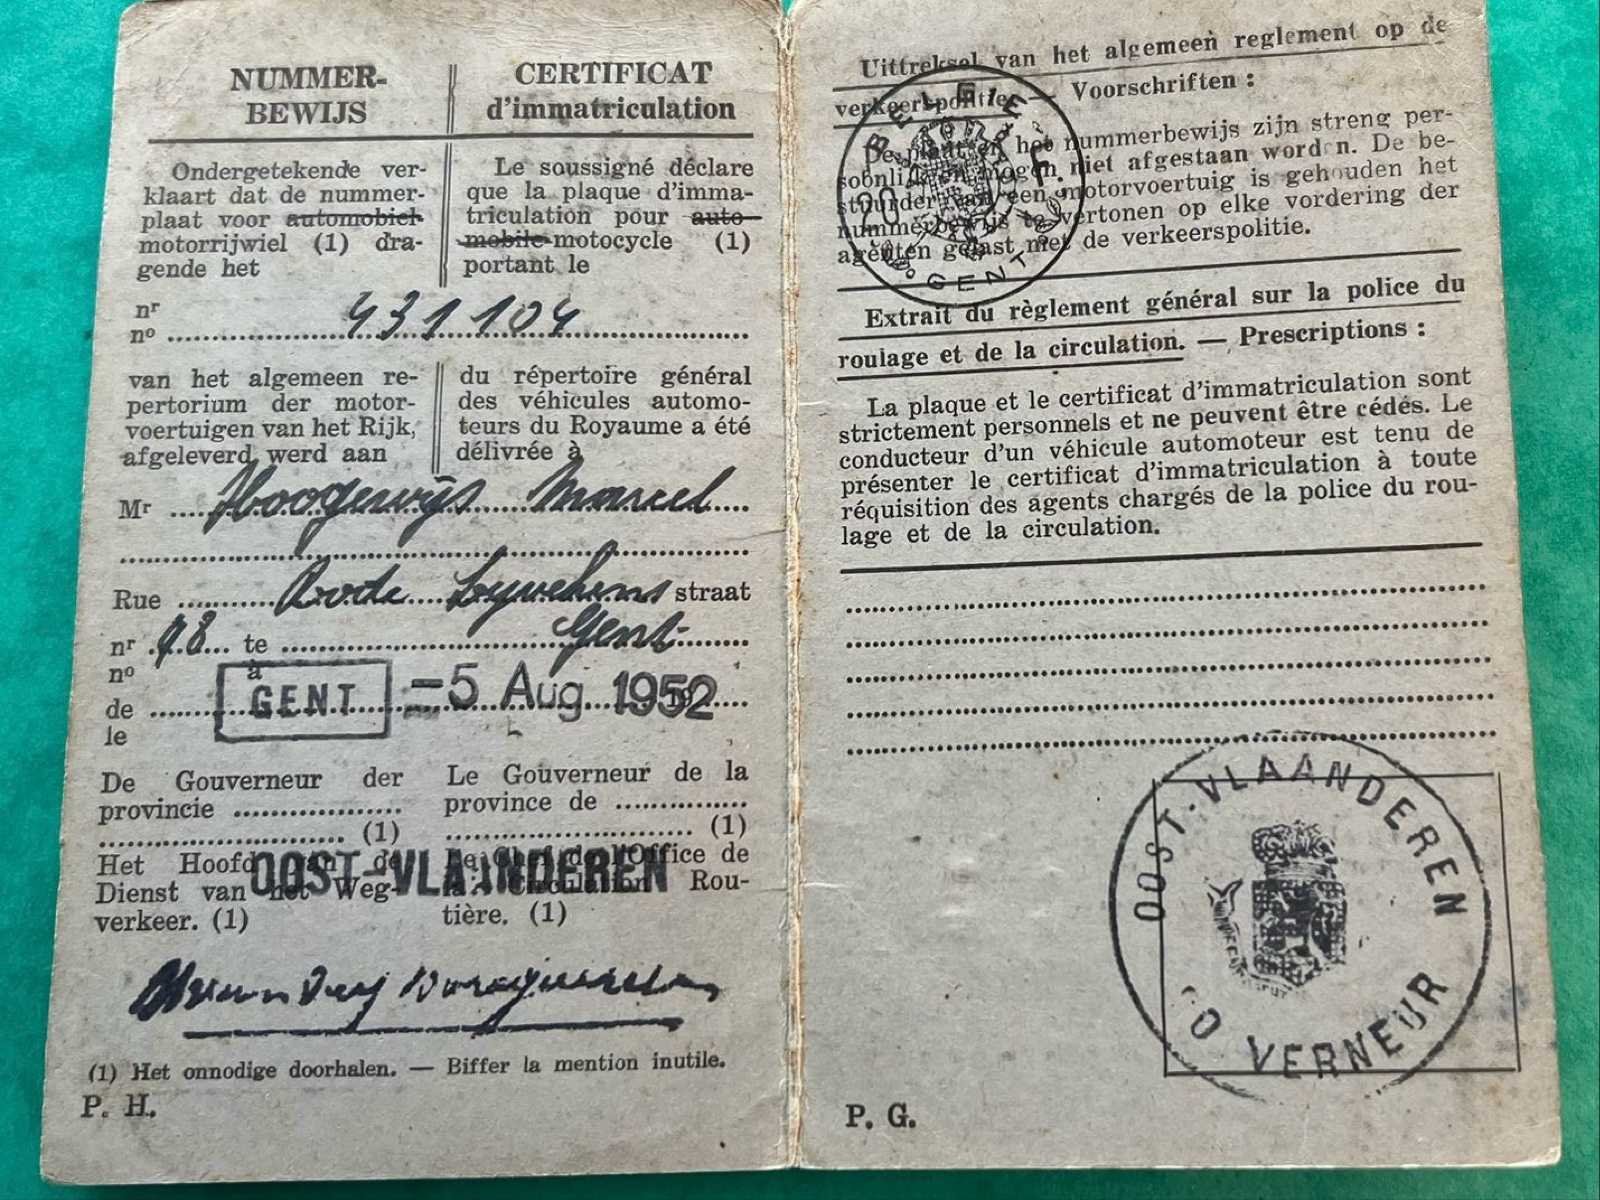 NUMMER-
BEWIJS
Ondergetekende ver-
klaart dat de nummer-
plaat voor automobiel
motorrijwiel (1) dra-
gende het
CERTIFICAT
d'immatriculation
Le soussigné déclare
que la plaque d'imma-
triculation pour auto-
mobile motocycle (1)
portant le
nr
no 431104
van het algemeen re-
pertorium der motor-
voertuigen van het Rijk,
afgeleverd werd aan
du répertoire général
des véhicules automo-
teurs du Royaume a été
délivrée à
Mr Hoogewijs Marcel
Rue Rode straat
nr 98 te Gent
no à
de GENT -5 Aug. 1952
le
De Gouverneur der
provincie
(1)
Het Hoofd van de
Dienst van het Weg-
verkeer. (1)
Le Gouverneur de la
province de
(1)
Le Chef de l'Office de
la Circulation Rou-
tière. (1)
OOST-VLAANDEREN
(1) Het onnodige doorhalen. — Biffer la mention inutile.
P. H.
Uittreksel van het algemeen reglement op de
verkeerspolitie — Voorschriften :
De plaat en het nummerbewijs zijn streng per-
soonlijk en mogen niet afgestaan worden. De be-
stuurder van een motorvoertuig is gehouden het
nummerbewijs te vertonen op elke vordering der
agenten gelast met de verkeerspolitie.
BELGIE
20 F.
GENT
Extrait du règlement général sur la police du
roulage et de la circulation. — Prescriptions :
La plaque et le certificat d'immatriculation sont
strictement personnels et ne peuvent être cédés. Le
conducteur d'un véhicule automoteur est tenu de
présenter le certificat d'immatriculation à toute
réquisition des agents chargés de la police du rou-
lage et de la circulation.
OOST-VLAANDEREN
GOUVERNEUR
P. G.